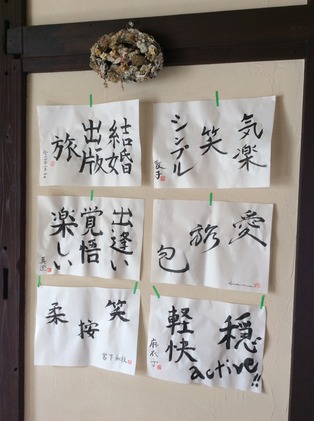 結婚
出版
旅
気楽
笑
シンプル
出逢い
覚悟
楽しい
愛
旅
包
笑
按
柔
宮下
穏
軽快
active!!